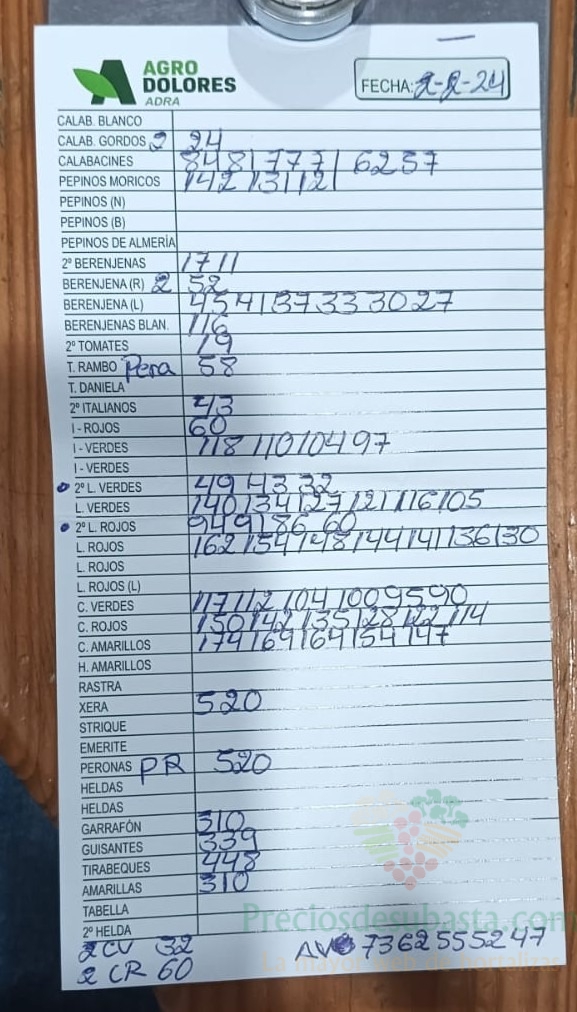 AGRO
DOLORES
ADRA
FECHA: 2-2-24
CALAB. BLANCO
CALAB. GORDOS 2 24
CALABACINES 84 81 77 71 62 57
PEPINOS MORICOS 142 131 121
PEPINOS (N)
PEPINOS (B)
PEPINOS DE ALMERÍA
2º BERENJENAS 17 11
BERENJENA (R) 2 52
BERENJENA (L) 45 41 37 33 30 27
BERENJENAS BLAN. 116
2º TOMATES 19
T. RAMBO Pera 58
T. DANIELA
2º ITALIANOS 43
I - ROJOS 60
I - VERDES 118 110 104 97
I - VERDES
2º L. VERDES 49 43 32
L. VERDES 140 134 127 121 116 105
2º L. ROJOS 94 91 86 60
L. ROJOS 162 154 148 144 141 136 130
L. ROJOS
L. ROJOS (L)
C. VERDES 117 112 104 100 95 90
C. ROJOS 150 142 135 128 122 114
C. AMARILLOS 174 169 164 154 147
H. AMARILLOS
RASTRA
XERA 520
STRIQUE
EMERITE
PERONAS PR 520
HELDAS
HELDAS
GARRAFÓN 310
GUISANTES 339
TIRABEQUES 448
AMARILLAS 310
TABELLA
Preciosdesubasta.com
2º HELDA
2 CV 32
AVO 73 62 55 52 47
2 CR 60